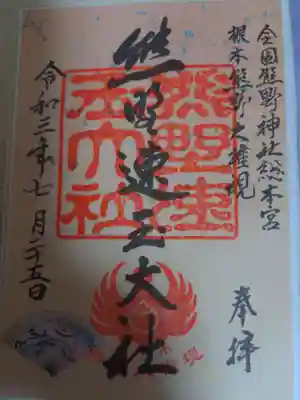 全国熊野神社総本宮
根本熊野大権現
奉拝
熊野速玉大社
熊野速玉大社
令和三年七月二五日